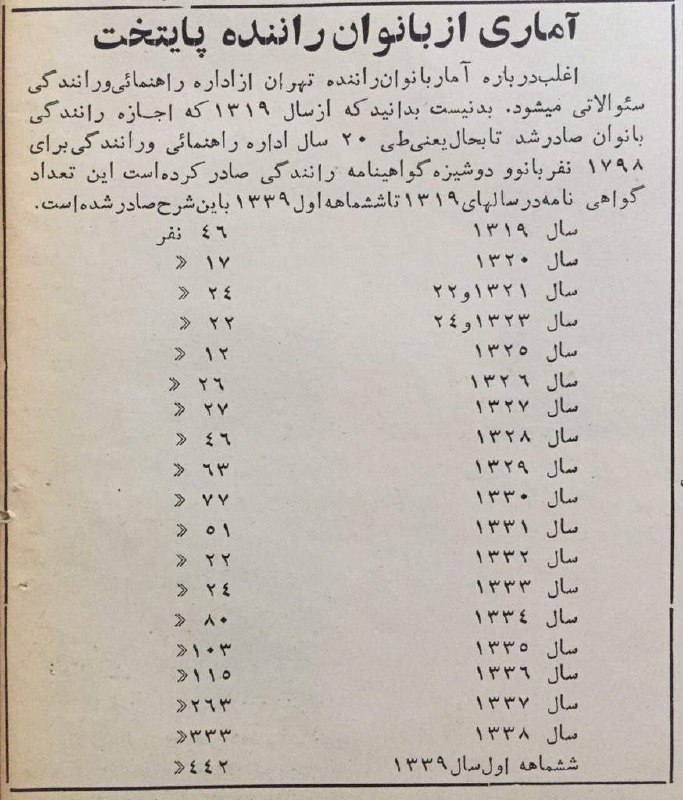 آماری از بانوان راننده پایتخت
اغلب درباره آمار بانوان راننده تهران از اداره راهنمائی و رانندگی
سئوالاتی میشود. بدنیست بدانید که از سال ۱۳۱۹ که اجازه رانندگی
بانوان صادر شد تا بحال یعنی طی ۲۰ سال اداره راهنمائی و رانندگی برای
۱۷۹۸ نفر بانو و دوشیزه گواهینامه رانندگی صادر کرده است این تعداد
گواهی نامه در سالهای ۱۳۱۹ تا ششماهه اول ۱۳۳۹ باین شرح صادر شده است.
سال ۱۳۱۹ ۴۶ نفر
سال ۱۳۲۰ ۱۷ »
سال ۱۳۲۱ و ۲۲ ۲۴ »
سال ۱۳۲۳ و ۲۴ ۲۲ »
سال ۱۳۲۵ ۱۲ »
سال ۱۳۲۶ ۲۶ »
سال ۱۳۲۷ ۲۷ »
سال ۱۳۲۸ ۴۶ »
سال ۱۳۲۹ ۶۳ »
سال ۱۳۳۰ ۷۷ »
سال ۱۳۳۱ ۵۱ »
سال ۱۳۳۲ ۲۲ »
سال ۱۳۳۳ ۲۴ »
سال ۱۳۳۴ ۸۰ »
سال ۱۳۳۵ ۱۰۳ »
سال ۱۳۳۶ ۱۱۵ »
سال ۱۳۳۷ ۲۶۳ »
سال ۱۳۳۸ ۳۳۳ »
ششماهه اول سال ۱۳۳۹ ۴۴۲ »